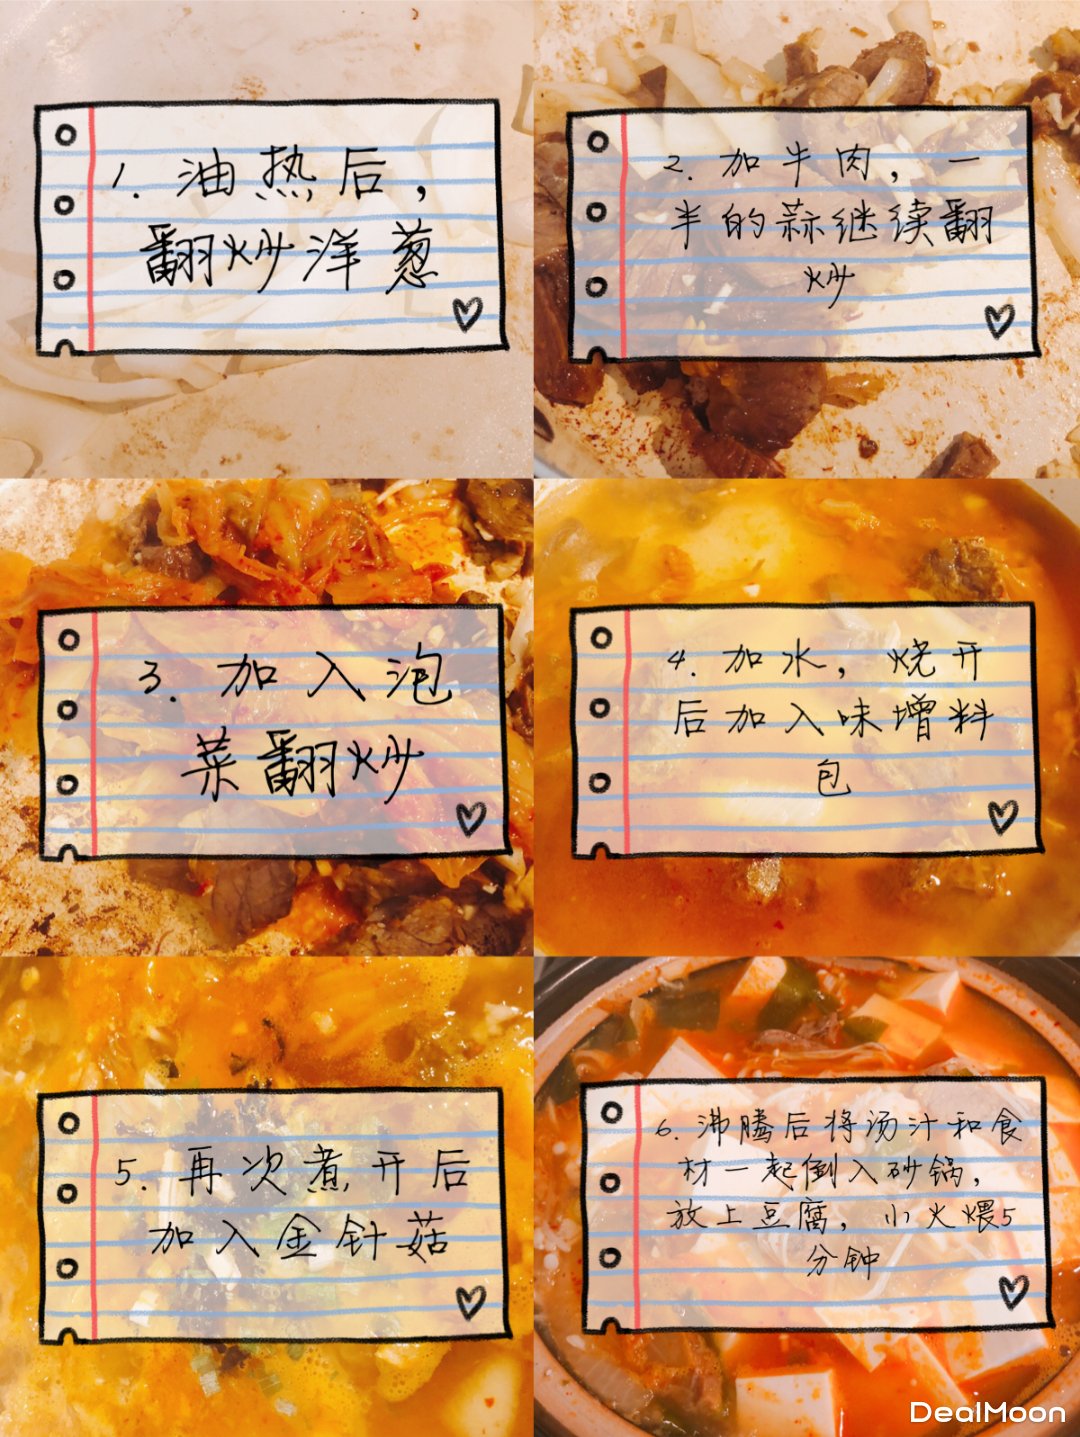 1. 油热后，
翻炒洋葱
2. 加牛肉，一
半的蒜继续翻
炒
3. 加入泡
菜翻炒
4. 加水，烧开
后加入味增料
包
5. 再次煮开后
加入金针菇
6. 沸腾后将汤汁和食
材一起倒入砂锅，
放上豆腐，小火煨5
分钟
DealMoon